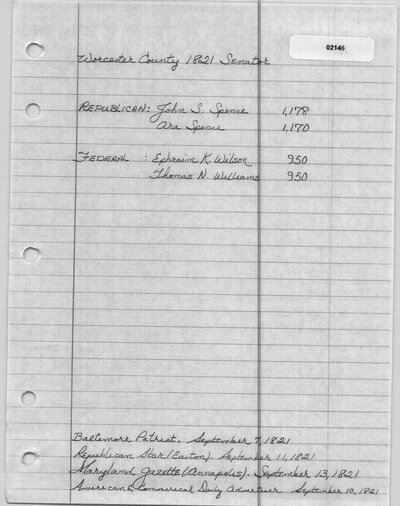 02146
Worcester County 1821 Senator
REPUBLICAN: John S. Spence 1,178
Ara Spence 1,170
FEDERAL : Ephraim K. Wilson 950
Thomas N. Williams 950
Baltimore Patriot. September 7, 1821
Republican Star (Easton). September 11, 1821
Maryland Gazette (Annapolis). September 13, 1821
American & Commerical Daily Advertiser. September 10, 1821